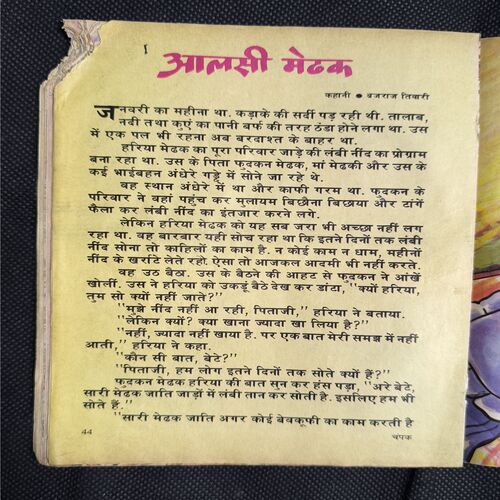 आलसी मेढक
कहानी • ब्रजराज तिवारी
जनवरी का महीना था. कड़ाके की सर्दी पड़ रही थी. तालाब,
नदी तथा कुएं का पानी बर्फ की तरह ठंडा होने लगा था. उस
में एक पल भी रहना अब बरदाश्त के बाहर था.
हरिया मेढक का पूरा परिवार जाड़े की लंबी नींद का प्रोग्राम
बना रहा था. उस के पिता फुदकन मेढक, मां मेढकी और उस के
कई भाईबहन अंधेरे गड्ढे में सोने जा रहे थे.
वह स्थान अंधेरे में था और काफी गरम था. फुदकन के
परिवार ने वहां पहुंच कर मुलायम बिछौना बिछाया और टांगें
फैला कर लंबी नींद का इंतजार करने लगे.
लेकिन हरिया मेढक को यह सब जरा भी अच्छा नहीं लग
रहा था. वह बारबार यही सोच रहा था कि इतने दिनों तक लंबी
नींद सोना तो काहिलों का काम है. न कोई काम न धाम, महीनों
नींद के खर्राटे लेते रहो. ऐसा तो आजकल आदमी भी नहीं करते.
वह उठ बैठा. उस के बैठने की आहट से फुदकन ने आंखें
खोलीं. उस ने हरिया को उकड़ूं बैठे देख कर डांटा, "क्यों हरिया,
तुम सो क्यों नहीं जाते?"
"मुझे नींद नहीं आ रही, पिताजी," हरिया ने बताया.
"लेकिन क्यों? क्या खाना ज्यादा खा लिया है?"
"नहीं, ज्यादा नहीं खाया है. पर एक बात मेरी समझ में नहीं
आती," हरिया ने कहा.
"कौन सी बात, बेटे?"
"पिताजी, हम लोग इतने दिनों तक सोते क्यों हैं?"
फुदकन मेढक हरिया की बात सुन कर हंस पड़ा, "अरे बेटे,
सारी मेढक जाति जाड़ों में लंबी तान कर सोती है. इसलिए हम भी
सोते हैं."
"सारी मेढक जाति अगर कोई बेवकूफी का काम करती है
44
चंपक